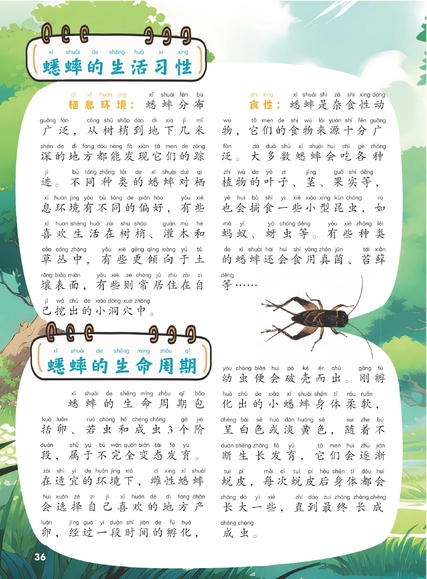 xī shuài de shēng huó xí xìng
蟋蟀的生活习性
qī xī huán jìng xī shuài fēn bù
栖息环境：蟋蟀分布
guǎng fàn cóng shù shāo dào dì xià jǐ mǐ
广泛，从树梢到地下几米
shēn de dì fang dōu néng fā xiàn tā men de zōng
深的地方都能发现它们的踪
jì bù tóng zhǒng lèi de xī shuài duì qī
迹。不同种类的蟋蟀对栖
xī huán jìng yǒu bù tóng de piān hào yǒu xiē
息环境有不同的偏好，有些
xǐ huan shēng huó zài shù shāo guàn mù hé
喜欢生活在树梢、灌木和
cǎo cóng zhōng yǒu xiē gèng qīng xiàng yú tǔ
草丛中，有些更倾向于土
rǎng biǎo miàn yǒu xiē zé cháng jū zhù zài zì
壤表面，有些则常居住在自
jǐ wā chū de xiǎo dòng xué zhōng
己挖出的小洞穴中。
shí xìng xī shuài shì zá shí xìng dòng
食性：蟋蟀是杂食性动
wù tā men de shí wù lái yuán shí fēn guǎng
物，它们的食物来源十分广
fàn dà duō shù xī shuài huì chī gè zhǒng
泛。大多数蟋蟀会吃各种
zhí wù de yè zi jīng guǒ shí děng
植物的叶子、茎、果实等，
yě huì bǔ shí yì xiē xiǎo xíng kūn chóng rú
也会捕食一些小型昆虫，如
mǎ yǐ yá chóng děng yǒu xiē zhǒng lèi
蚂蚁、蚜虫等。有些种类
de xī shuài hái huì shí yòng zhēn jūn tái xiǎn
的蟋蟀还会食用真菌、苔藓
děng
等……
xī shuài de shēng mìng zhōu qī
蟋蟀的生命周期
xī shuài de shēng mìng zhōu qī bāo
蟋蟀的生命周期包
kuò luǎn ruò chóng hé chéng chóng gè jiē
括卵、若虫和成虫3个阶
duàn shǔ yú bù wán quán biàn tài fā yù
段，属于不完全变态发育。
zài shì yí de huán jìng xià cí xìng xī shuài
在适宜的环境下，雌性蟋蟀
huì xuǎn zé zì jǐ xǐ huan de dì fang chǎn
会选择自己喜欢的地方产
luǎn jīng guò yí duàn shí jiān de fū huà
卵，经过一段时间的孵化，
yòu chóng biàn huì pò ké ér chū gāng fū
幼虫便会破壳而出。刚孵
huà chū de xiǎo xī shuài shēn tǐ róu ruǎn
化出的小蟋蟀身体柔软，
chéng bái sè huò dàn huáng sè suí zhe bú
呈白色或淡黄色，随着不
duàn shēng zhǎng fā yù tā men huì zhú jiàn
断生长发育，它们会逐渐
tuì pí měi cì tuì pí hòu shēn tǐ dōu huì
蜕皮，每次蜕皮后身体都会
zhǎng dà yì xiē zhí dào zuì zhōng zhǎng chéng
长大一些，直到最终长成
chéng chóng
成虫。
36